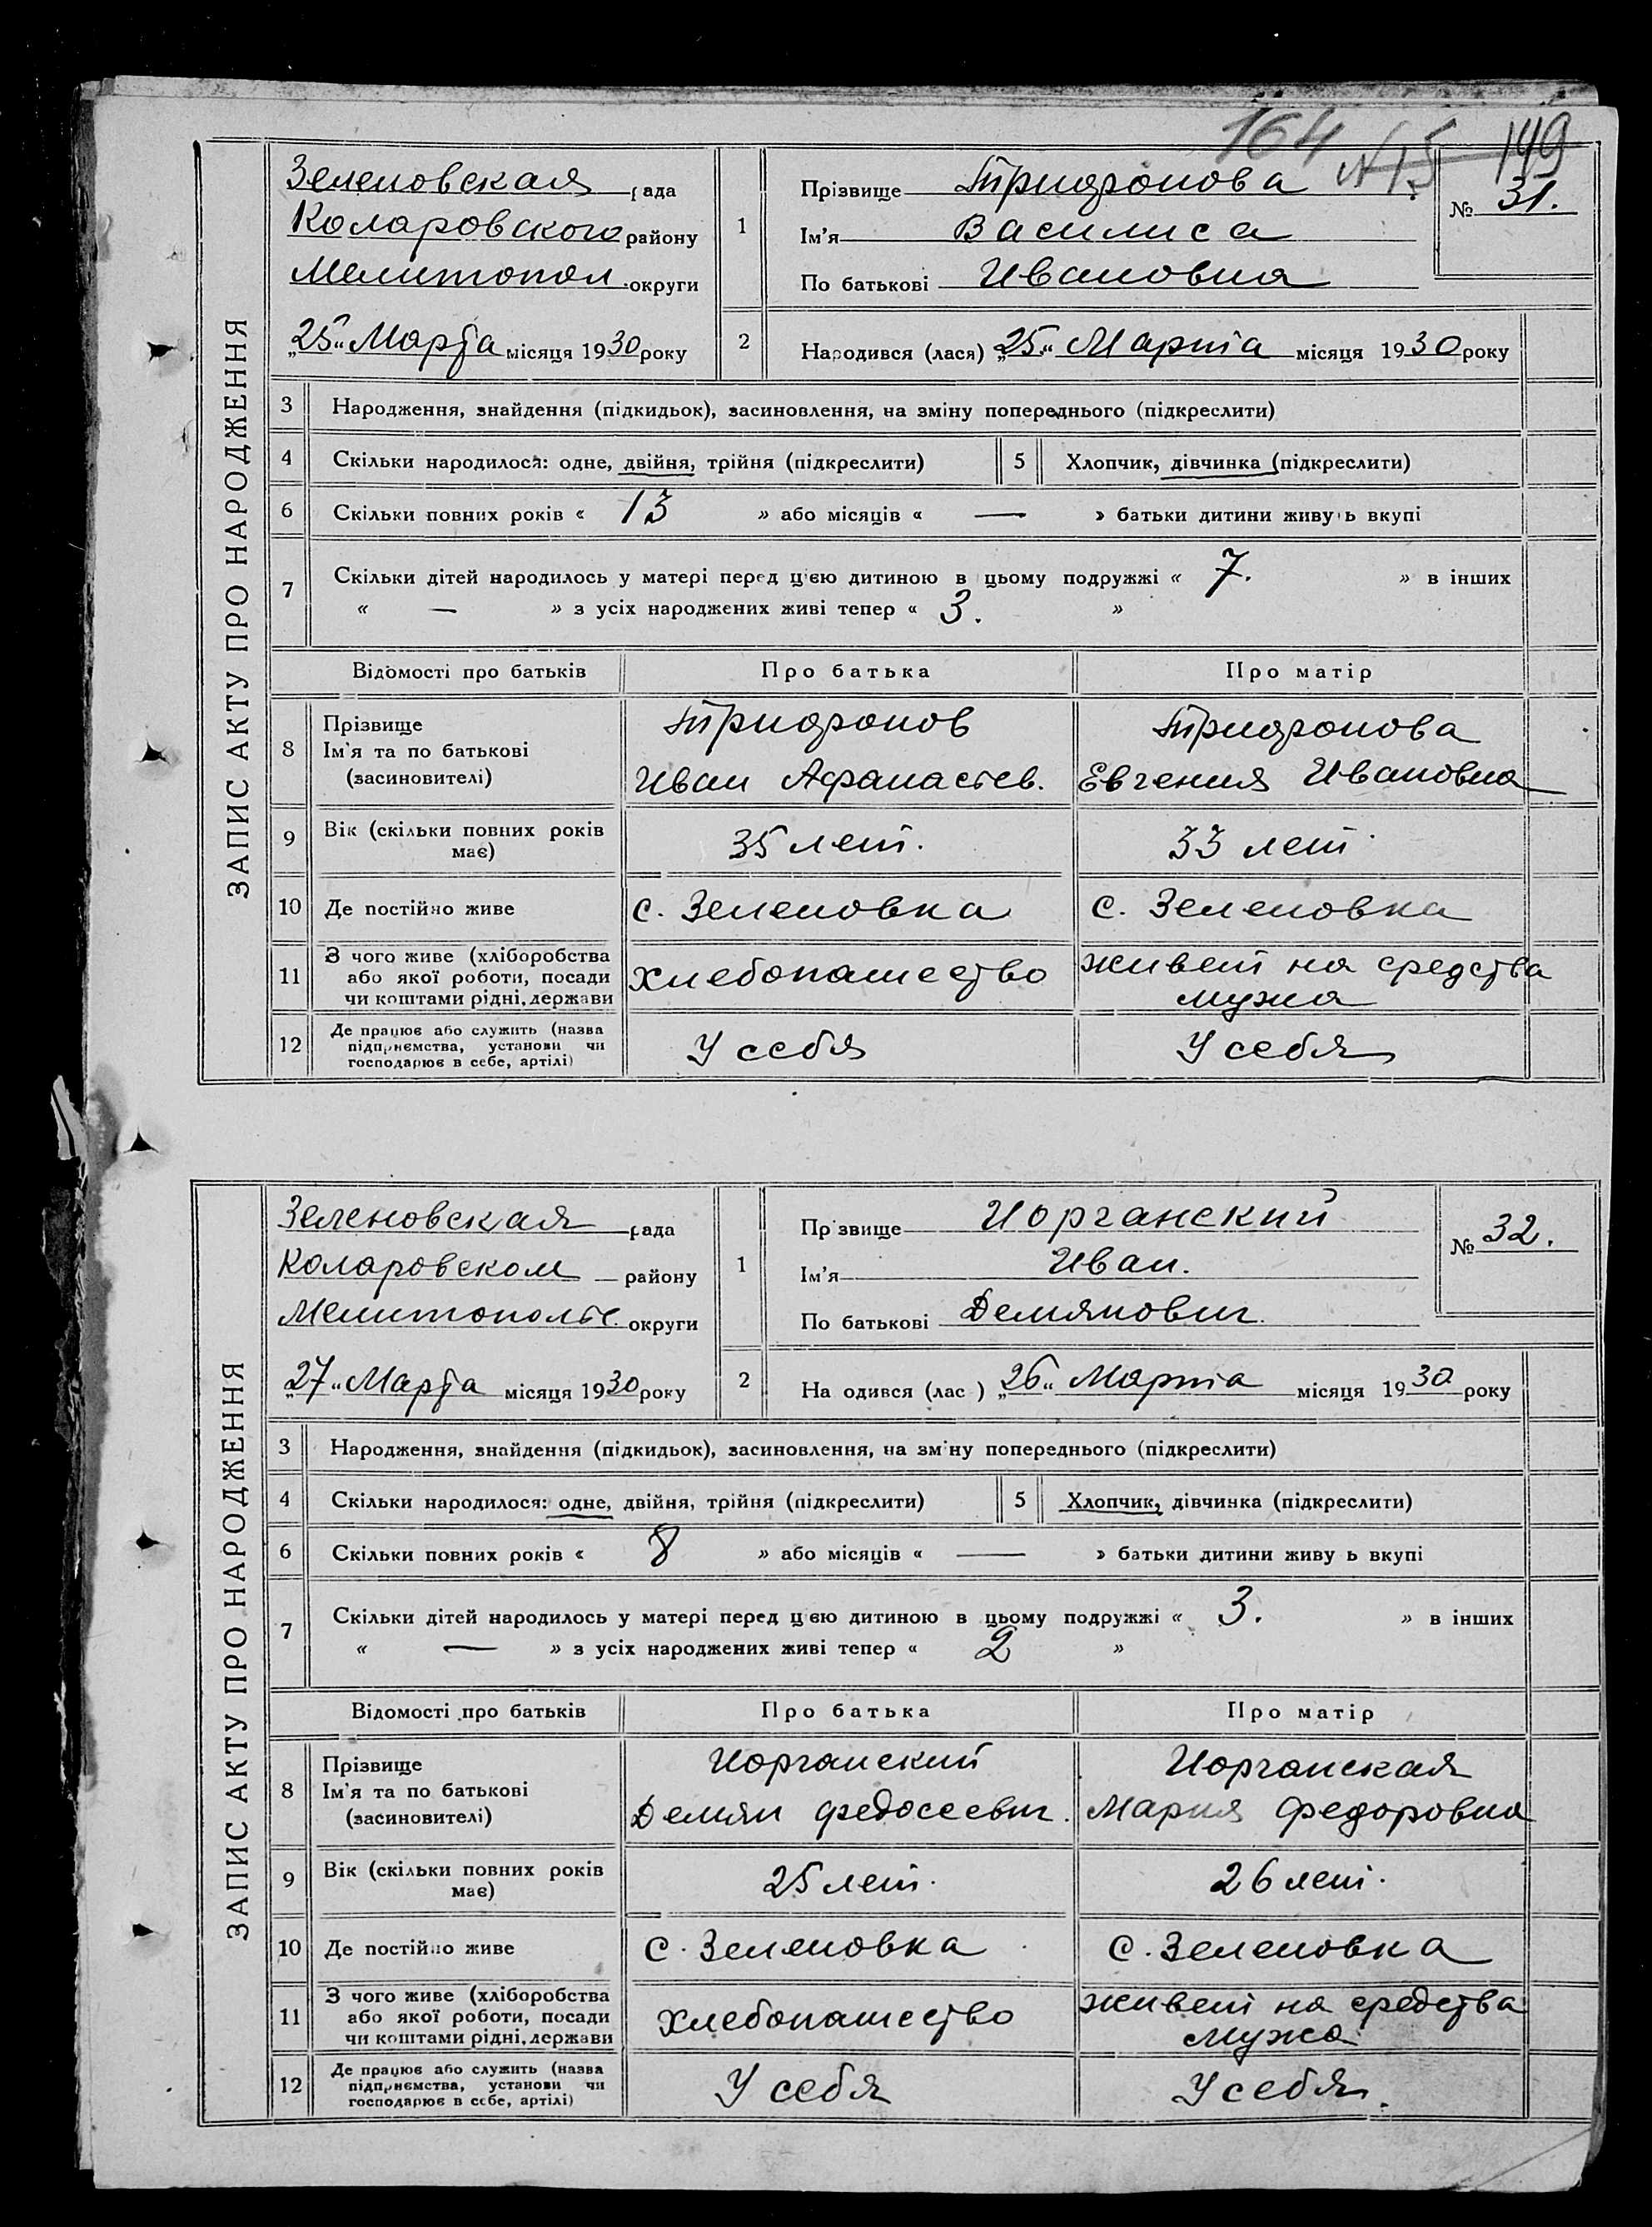 164 N15 149
ЗАПИС АКТУ ПРО НАРОДЖЕННЯ
Зеленовская рада
Коларовского району
Мелитопол. округи
„25“ Марта місяця 1930 року
1
Прізвище Трифонова
Ім'я Василиса
По батькові Ивановна
№ 31.
2 Народився (лася) „25“ Марта місяця 1930 року
3 Народження, знайдення (підкидьок), засиновлення, на зміну попереднього (підкреслити)
4 Скільки народилося: одне, двійня, трійня (підкреслити) 5 Хлопчик, дівчинка (підкреслити)
6 Скільки повних років « 13 » або місяців « — » батьки дитини живуть вкупі
7 Скільки дітей народилось у матері перед цією дитиною в цьому подружжі « 7. » в інших
« — » з усіх народжених живі тепер « 3. »
Відомості про батьків Про батька Про матір
8 Прізвище Ім'я та по батькові (засиновителі) Трифонов Иван Афанасьев. Трифонова Евгения Ивановна
9 Вік (скільки повних років має) 35 лет. 33 лет
10 Де постійно живе с. Зеленовка с. Зеленовка
11 З чого живе (хліборобства або якої роботи, посади чи коштами рідні, держави Хлебопашество живет на средства мужа
12 Де працює або служить (назва підприємства, установи чи господарює в себе, артілі) У себя У себя
ЗАПИС АКТУ ПРО НАРОДЖЕННЯ
Зеленовская рада
Коларовском району
Мелитопольс. округи
„27“ Марта місяця 1930 року
1
Прізвище Иорганский
Ім'я Иван.
По батькові Демянович.
№ 32.
2 На одився (лас ) „26“ Марта місяця 1930 року
3 Народження, знайдення (підкидьок), засиновлення, на зміну попереднього (підкреслити)
4 Скільки народилося: одне, двійня, трійня (підкреслити) 5 Хлопчик, дівчинка (підкреслити)
6 Скільки повних років « 8 » або місяців « — » батьки дитини живу ь вкупі
7 Скільки дітей народилось у матері перед цією дитиною в цьому подружжі « 3. » в інших
« — » з усіх народжених живі тепер « 2 »
Відомості про батьків Про батька Про матір
8 Прізвище Ім'я та по батькові (засиновителі) Иорганский Демян Федосеевич. Иорганская Мария Федоровна
9 Вік (скільки повних років має) 25 лет. 26 лет.
10 Де постійно живе с. Зеленовка с. Зеленовка
11 З чого живе (хліборобства або якої роботи, посади чи коштами рідні, держави Хлебопашество живет на средства мужа
12 Де працює або служить (назва підприємства, установи чи господарює в себе, артілі) У себя У себя.